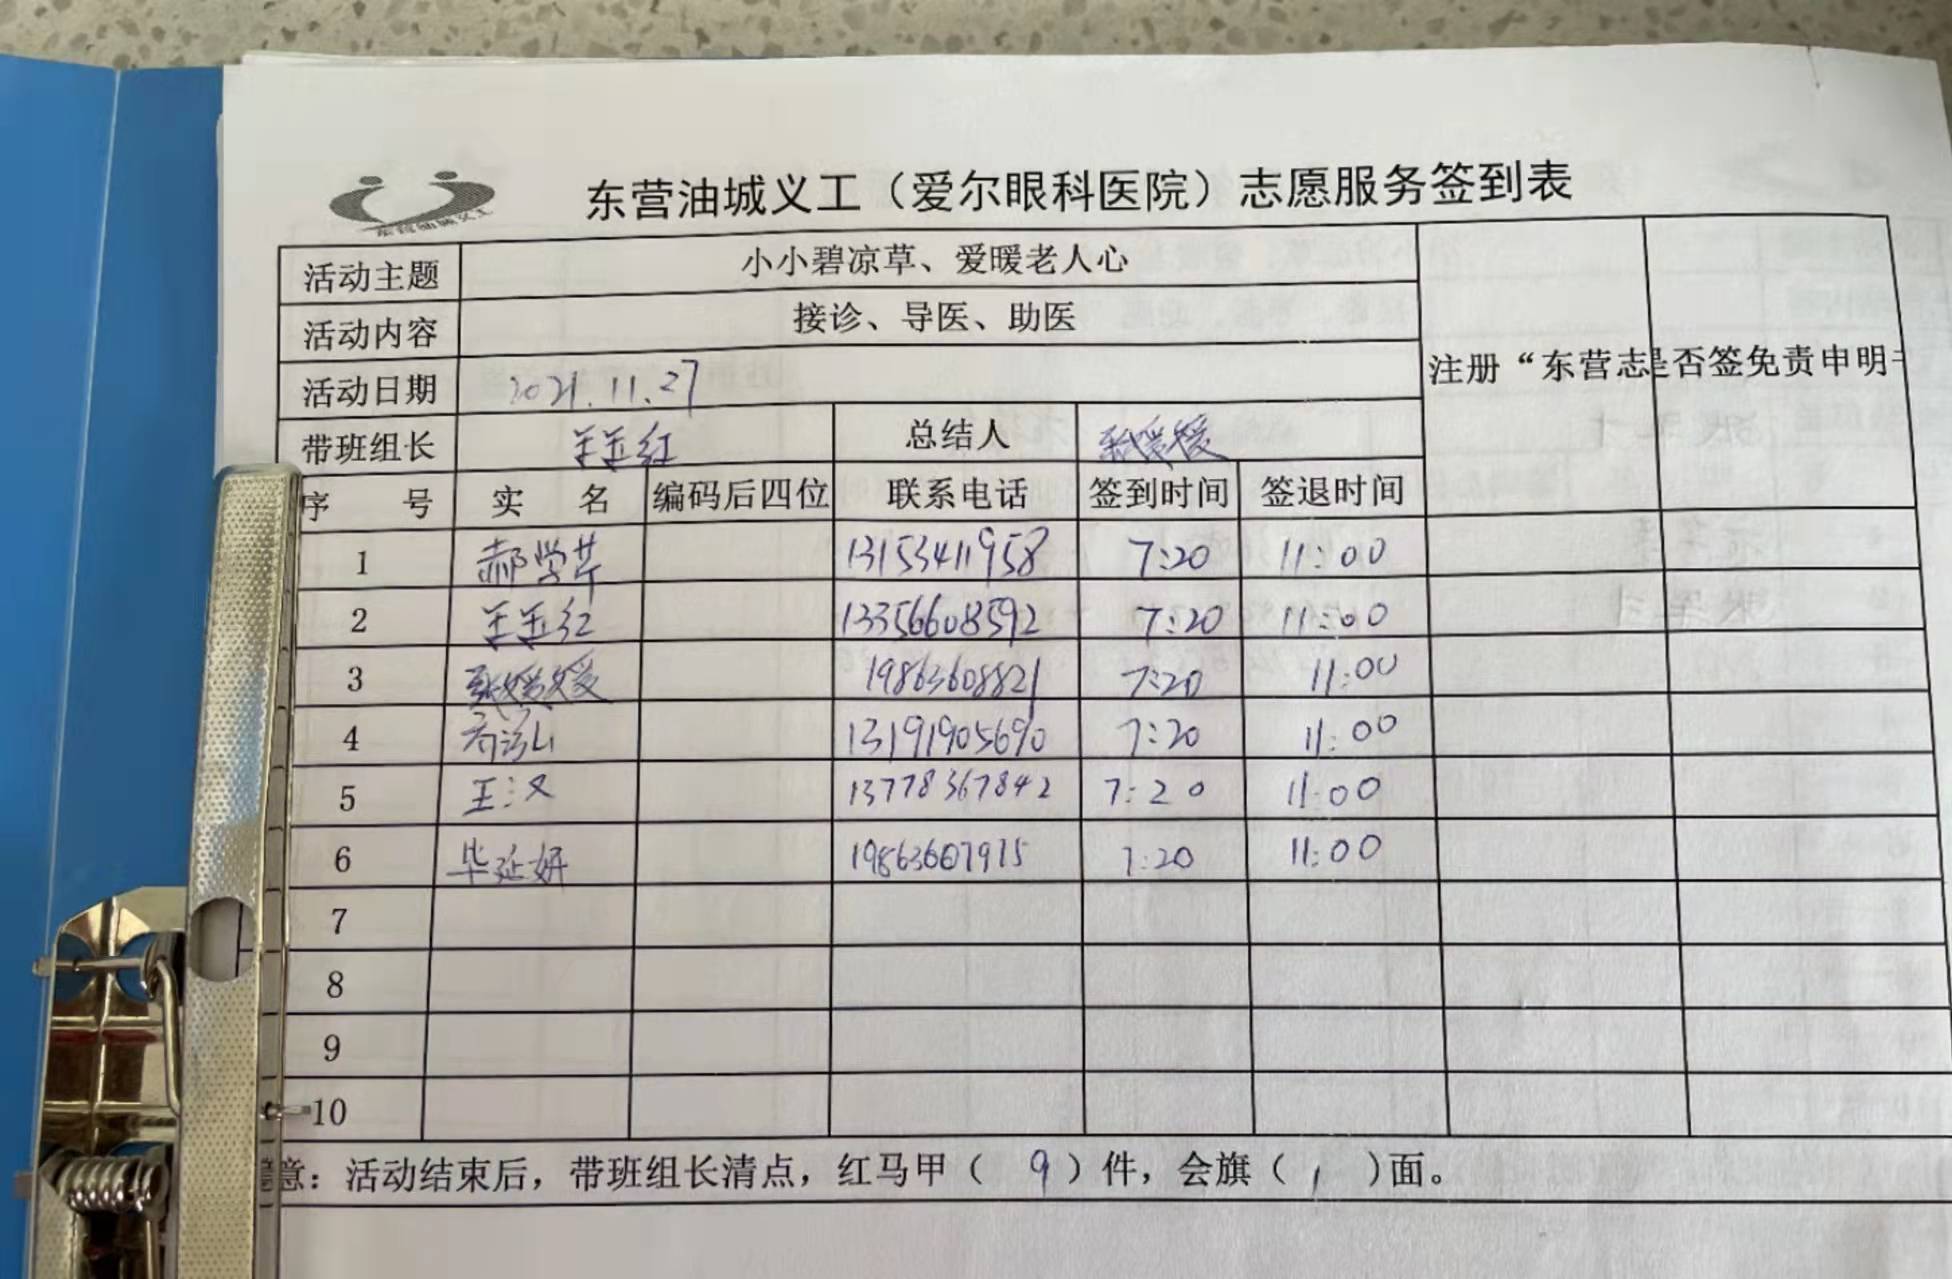 东营油城义工
东营油城义工（爱尔眼科医院）志愿服务签到表
活动主题 小小碧凉草、爱暖老人心
活动内容 接诊、导医、助医
注册“东营志 是否签免责申明
活动日期 2021.11.27
带班组长 王玉红 总结人 张媛媛
序 号 实 名 编码后四位 联系电话 签到时间 签退时间
1 郝学芹 13153411958 7:20 11:00
2 王玉红 13356608592 7:20 11:00
3 张媛媛 19863608821 7:20 11:00
4 13191905690 7:20 11:00
5 王汉 13778367842 7:20 11:00
6 毕延妍 19863607915 7:20 11:00
7
8
9
10
意：活动结束后，带班组长清点，红马甲（ 9 ）件，会旗（ 1 ）面。